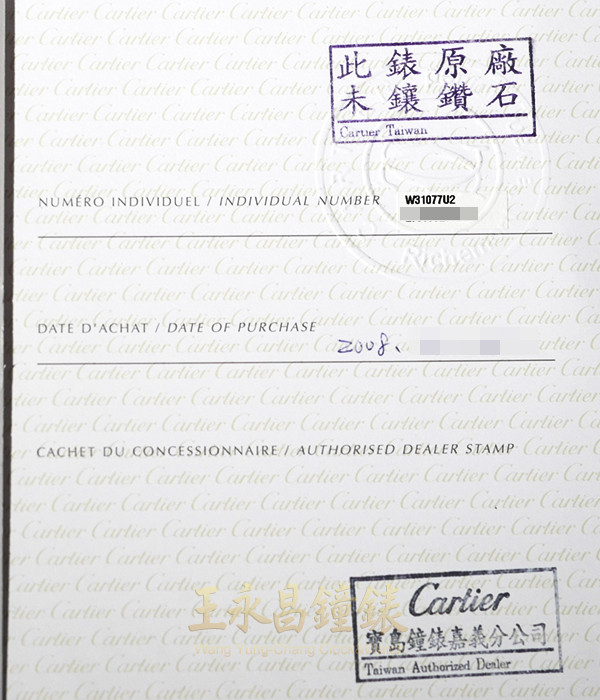 此錶原廠
未鑲鑽石
Cartier Taiwan
NUMÉRO INDIVIDUEL / INDIVIDUAL NUMBER W31077U2
DATE D'ACHAT / DATE OF PURCHASE
2008、
CACHET DU CONCESSIONNAIRE / AUTHORISED DEALER STAMP
Cartier
寶島鐘錶嘉義分公司
Taiwan Authorized Dealer
王永昌鐘錶